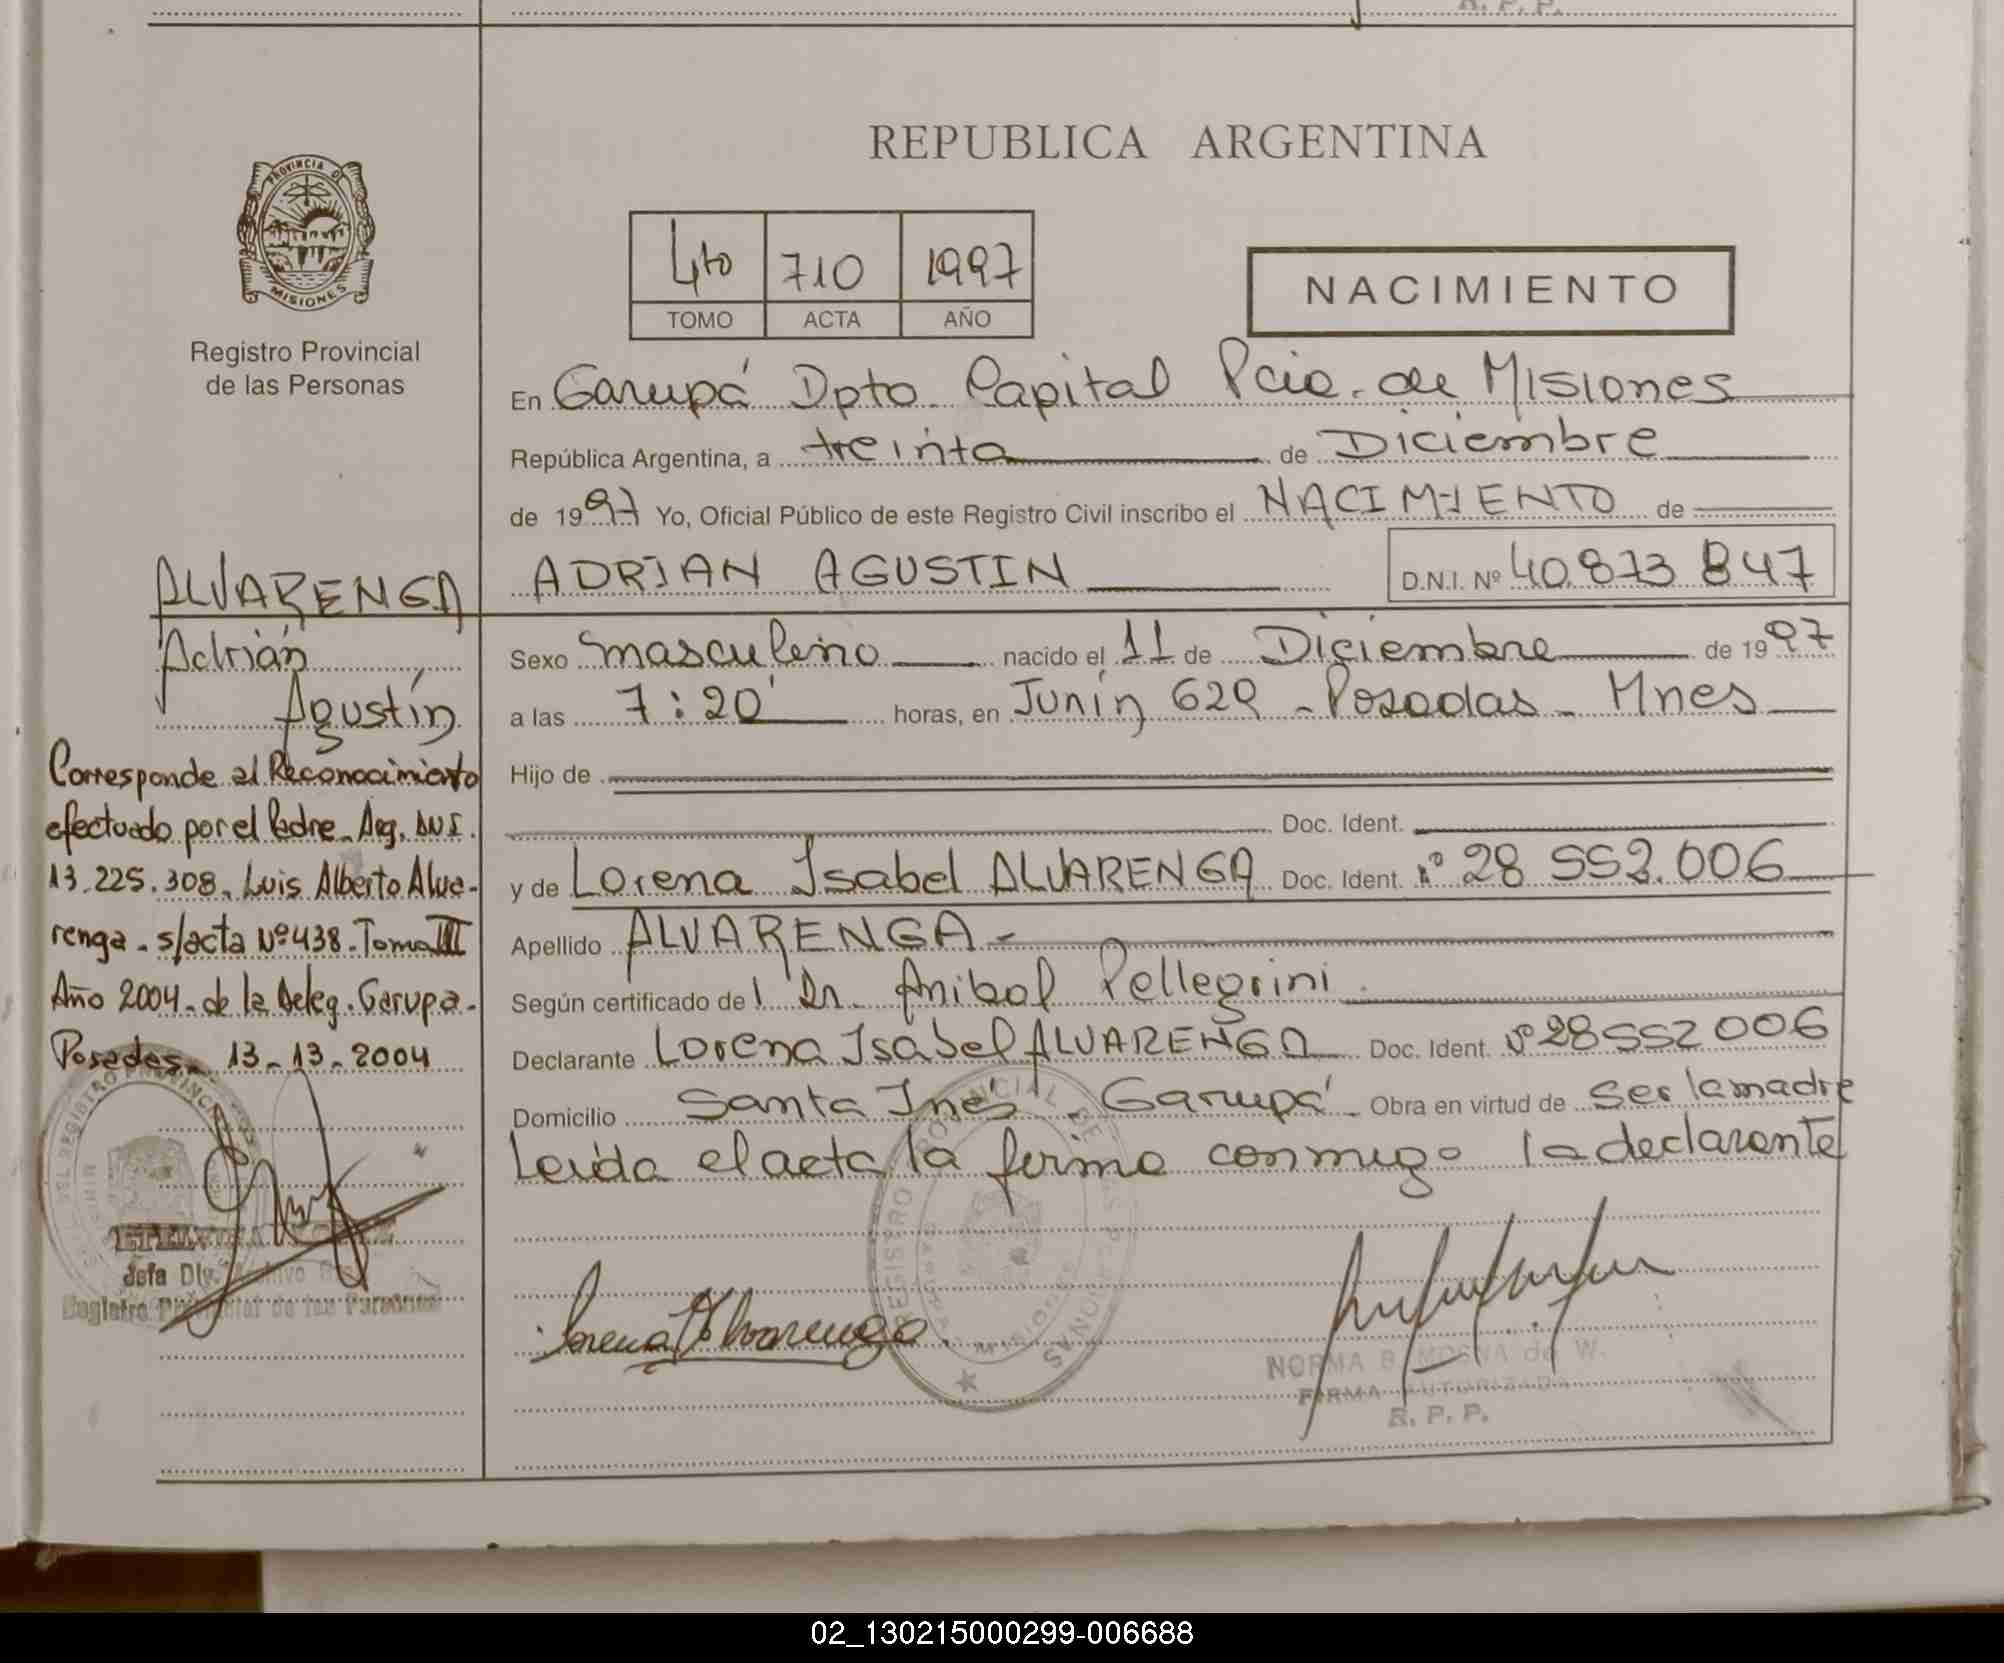 R. P. P.
REPUBLICA ARGENTINA
PROVINCIA DE
MISIONES
Registro Provincial
de las Personas
4to 710 1997
TOMO ACTA AÑO
NACIMIENTO
En Garupá Dpto. Capital Pcia. de Misiones
República Argentina, a treinta de Diciembre
de 1997 Yo, Oficial Público de este Registro Civil inscribo el NACIMIENTO de
ADRIAN AGUSTIN D.N.I. Nº 40.873 847
ALVARENGA
Adrián
Agustín
Corresponde al Reconocimiento
efectuado por el Padre. Arg. DNI.
13.225.308. Luis Alberto Alva-
renga. s/acta Nº 438. Tomo III
Año 2004. de la Deleg. Garupa.
Posadas. 13-13-2004
Sexo masculino nacido el 11 de Diciembre de 1997
a las 7:20' horas, en Junín 629 - Posadas - Mnes
Hijo de
Doc. Ident.
y de Lorena Isabel ALVARENGA Doc. Ident. Nº 28 552.006
Apellido ALVARENGA -
Según certificado del Dr. Anibal Pellegrini.
Declarante Lorena Isabel ALVARENGA Doc. Ident. Nº 28552006
Domicilio Santa Inés - Garupá Obra en virtud de ser la madre
Leída el acta la firma conmigo la declarante
REGISTRO PROVINCIAL DE LAS PERSONAS
MISIONES
Jefa Div. Archivo
Registro Provincial de las Personas
Lorena Alvarenga.
NORMA B. de W.
FIRMA AUTORIZADA
R. P. P.
02_130215000299-006688